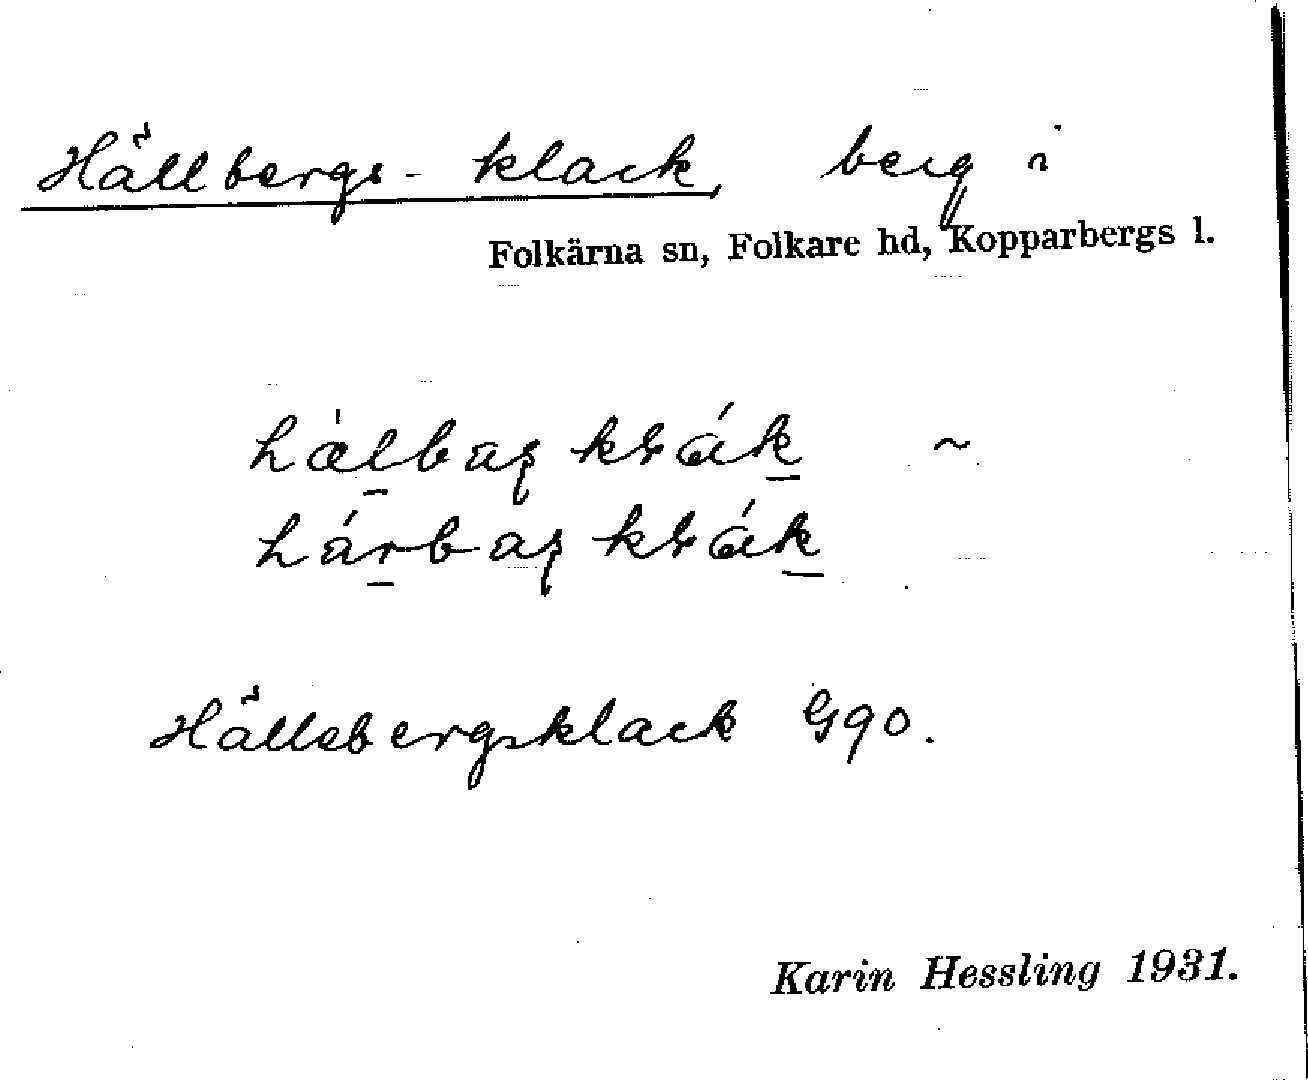 Hällbergs-klack, berg i
Folkärna sn, Folkare hd, Kopparbergs l.
~
Hällsbergsklack G90.
Karin Hessling 1931.